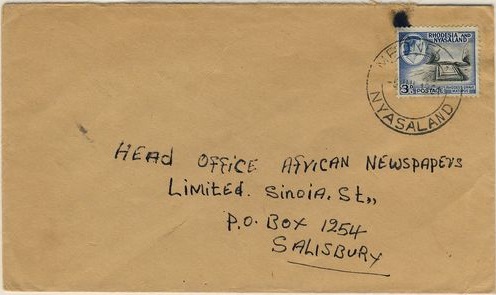 RHODESIA AND
NYASALAND
3d
POSTAGE
NYASALAND
HEAD OFFICE AFRICAN NEWSPAPERS
LIMITED. SINOIA. ST,,
P.O. BOX 1254
SALISBURY